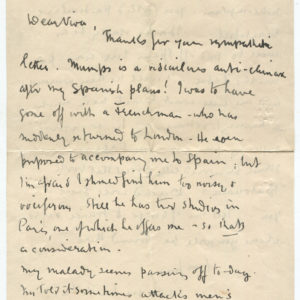 Dear Viva,
Thanks for your sympathetic
letter. Mumps is a ridiculous anti-climax
after my Spanish plans! I was to have
gone off with a Frenchman - who has
suddenly returned to London - He even
proposed to accompany me to Spain, but
I'm afraid I should find him too noisy &
vociferous. Still he has two studios in
Paris one of which he offers me - so that's
a consideration.
My malady seems passing off to-day.
I'm told it sometimes attacks men's